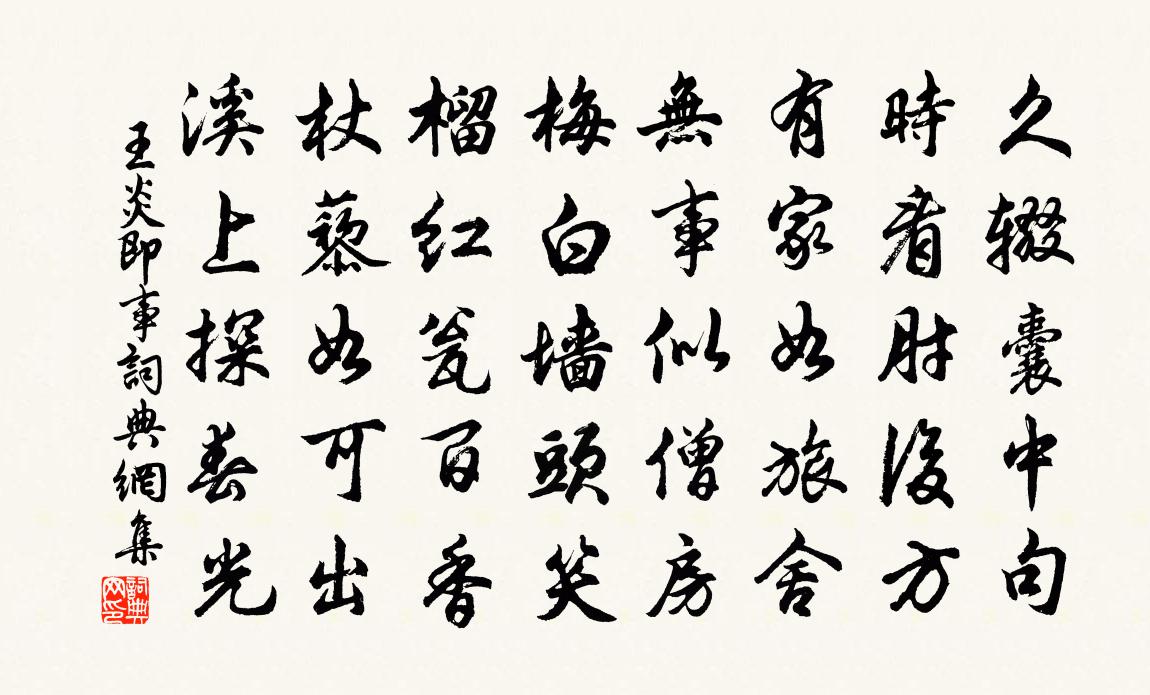 久辍囊中句
時看肘後方
有家如旅舍
無事似僧房
梅白墙頭笑
榴红瓮百香
杖藜如可出
溪上探春光
王炎即事詞典網集
詞典网印